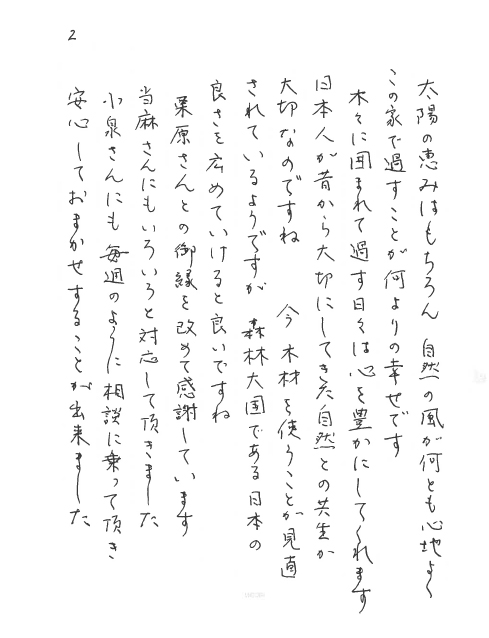 2
太陽の恵みはもちろん 自然の風が何とも心地よく
この家で過すことが何よりの幸せです
木々に囲まれて過す日々は心を豊かにしてくれます
日本人が昔から大切にしてきた自然との共生が
大切なのですね 今 木材を使うことが見直
されているようですが 森林大国である日本の
良さを広めていけると良いですね
栗原さんとの御縁を改めて感謝しています
当麻さんにもいろいろと対応して頂きました
小泉さんにも毎週のように相談に乗って頂き
安心しておまかせすることが出来ました